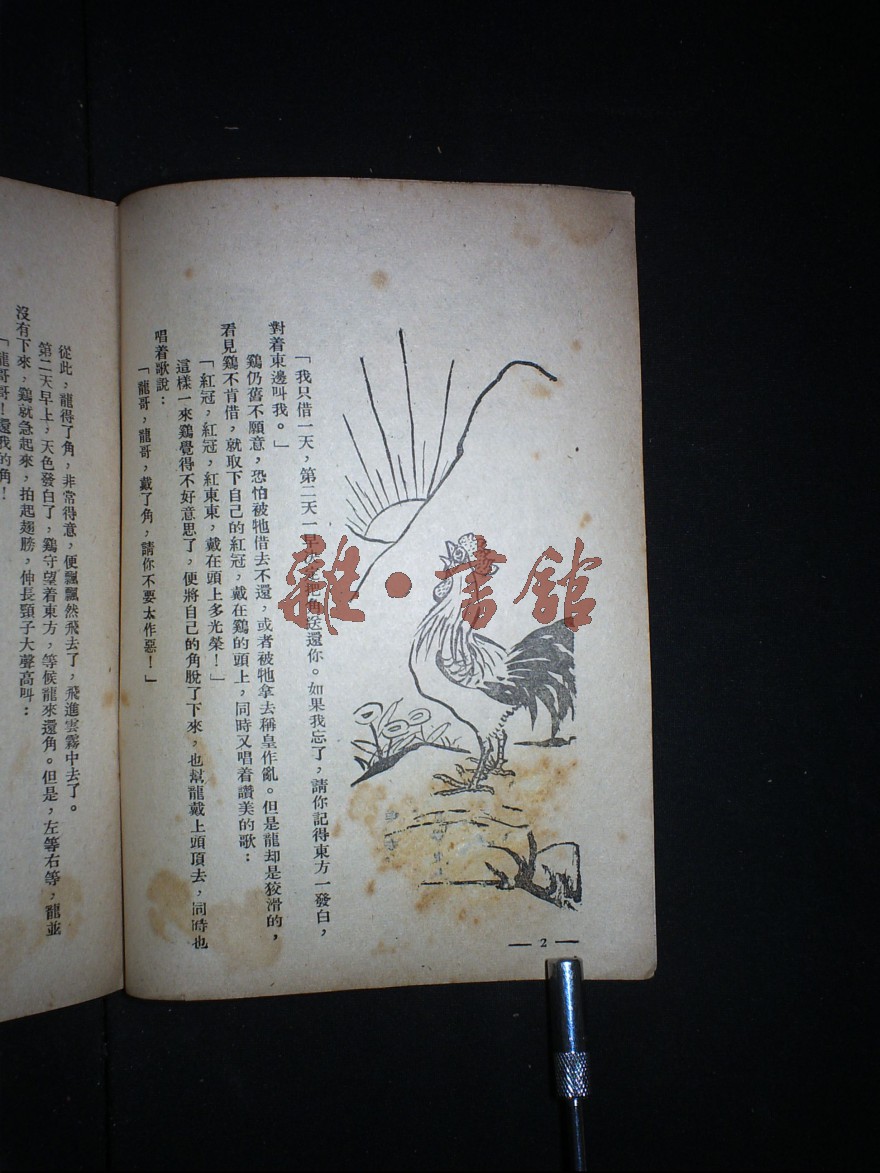 「我只借一天，第二天一早一定把角送還你。如果我忘了，請你記得東方一發白，
對着東邊叫我。」
鷄仍舊不願意，恐怕被牠借去不還，或者被牠拿去稱皇作亂。但是龍却是狡滑的，
看見鷄不肯借，就取下自己的紅冠，戴在鷄的頭上，同時又唱着讚美的歌：
「紅冠，紅冠，紅東東，戴在頭上多光榮！」
這樣一來鷄覺得不好意思了，便將自己的角脫了下來，也幫龍戴上頭頂去，同時也
唱着歌說：
「龍哥，龍哥，戴了角，請你不要太作惡！」
— 2 —
從此，龍得了角，非常得意，便飄飄然飛去了，飛進雲霧中去了。
第二天早上，天色發白了，鷄守望着東方，等候龍來還角。但是，左等右等，龍並
沒有下來，鷄就急起來，拍起翅膀，伸長頸子大聲高叫：
「龍哥哥！還我的角！
雜·書館